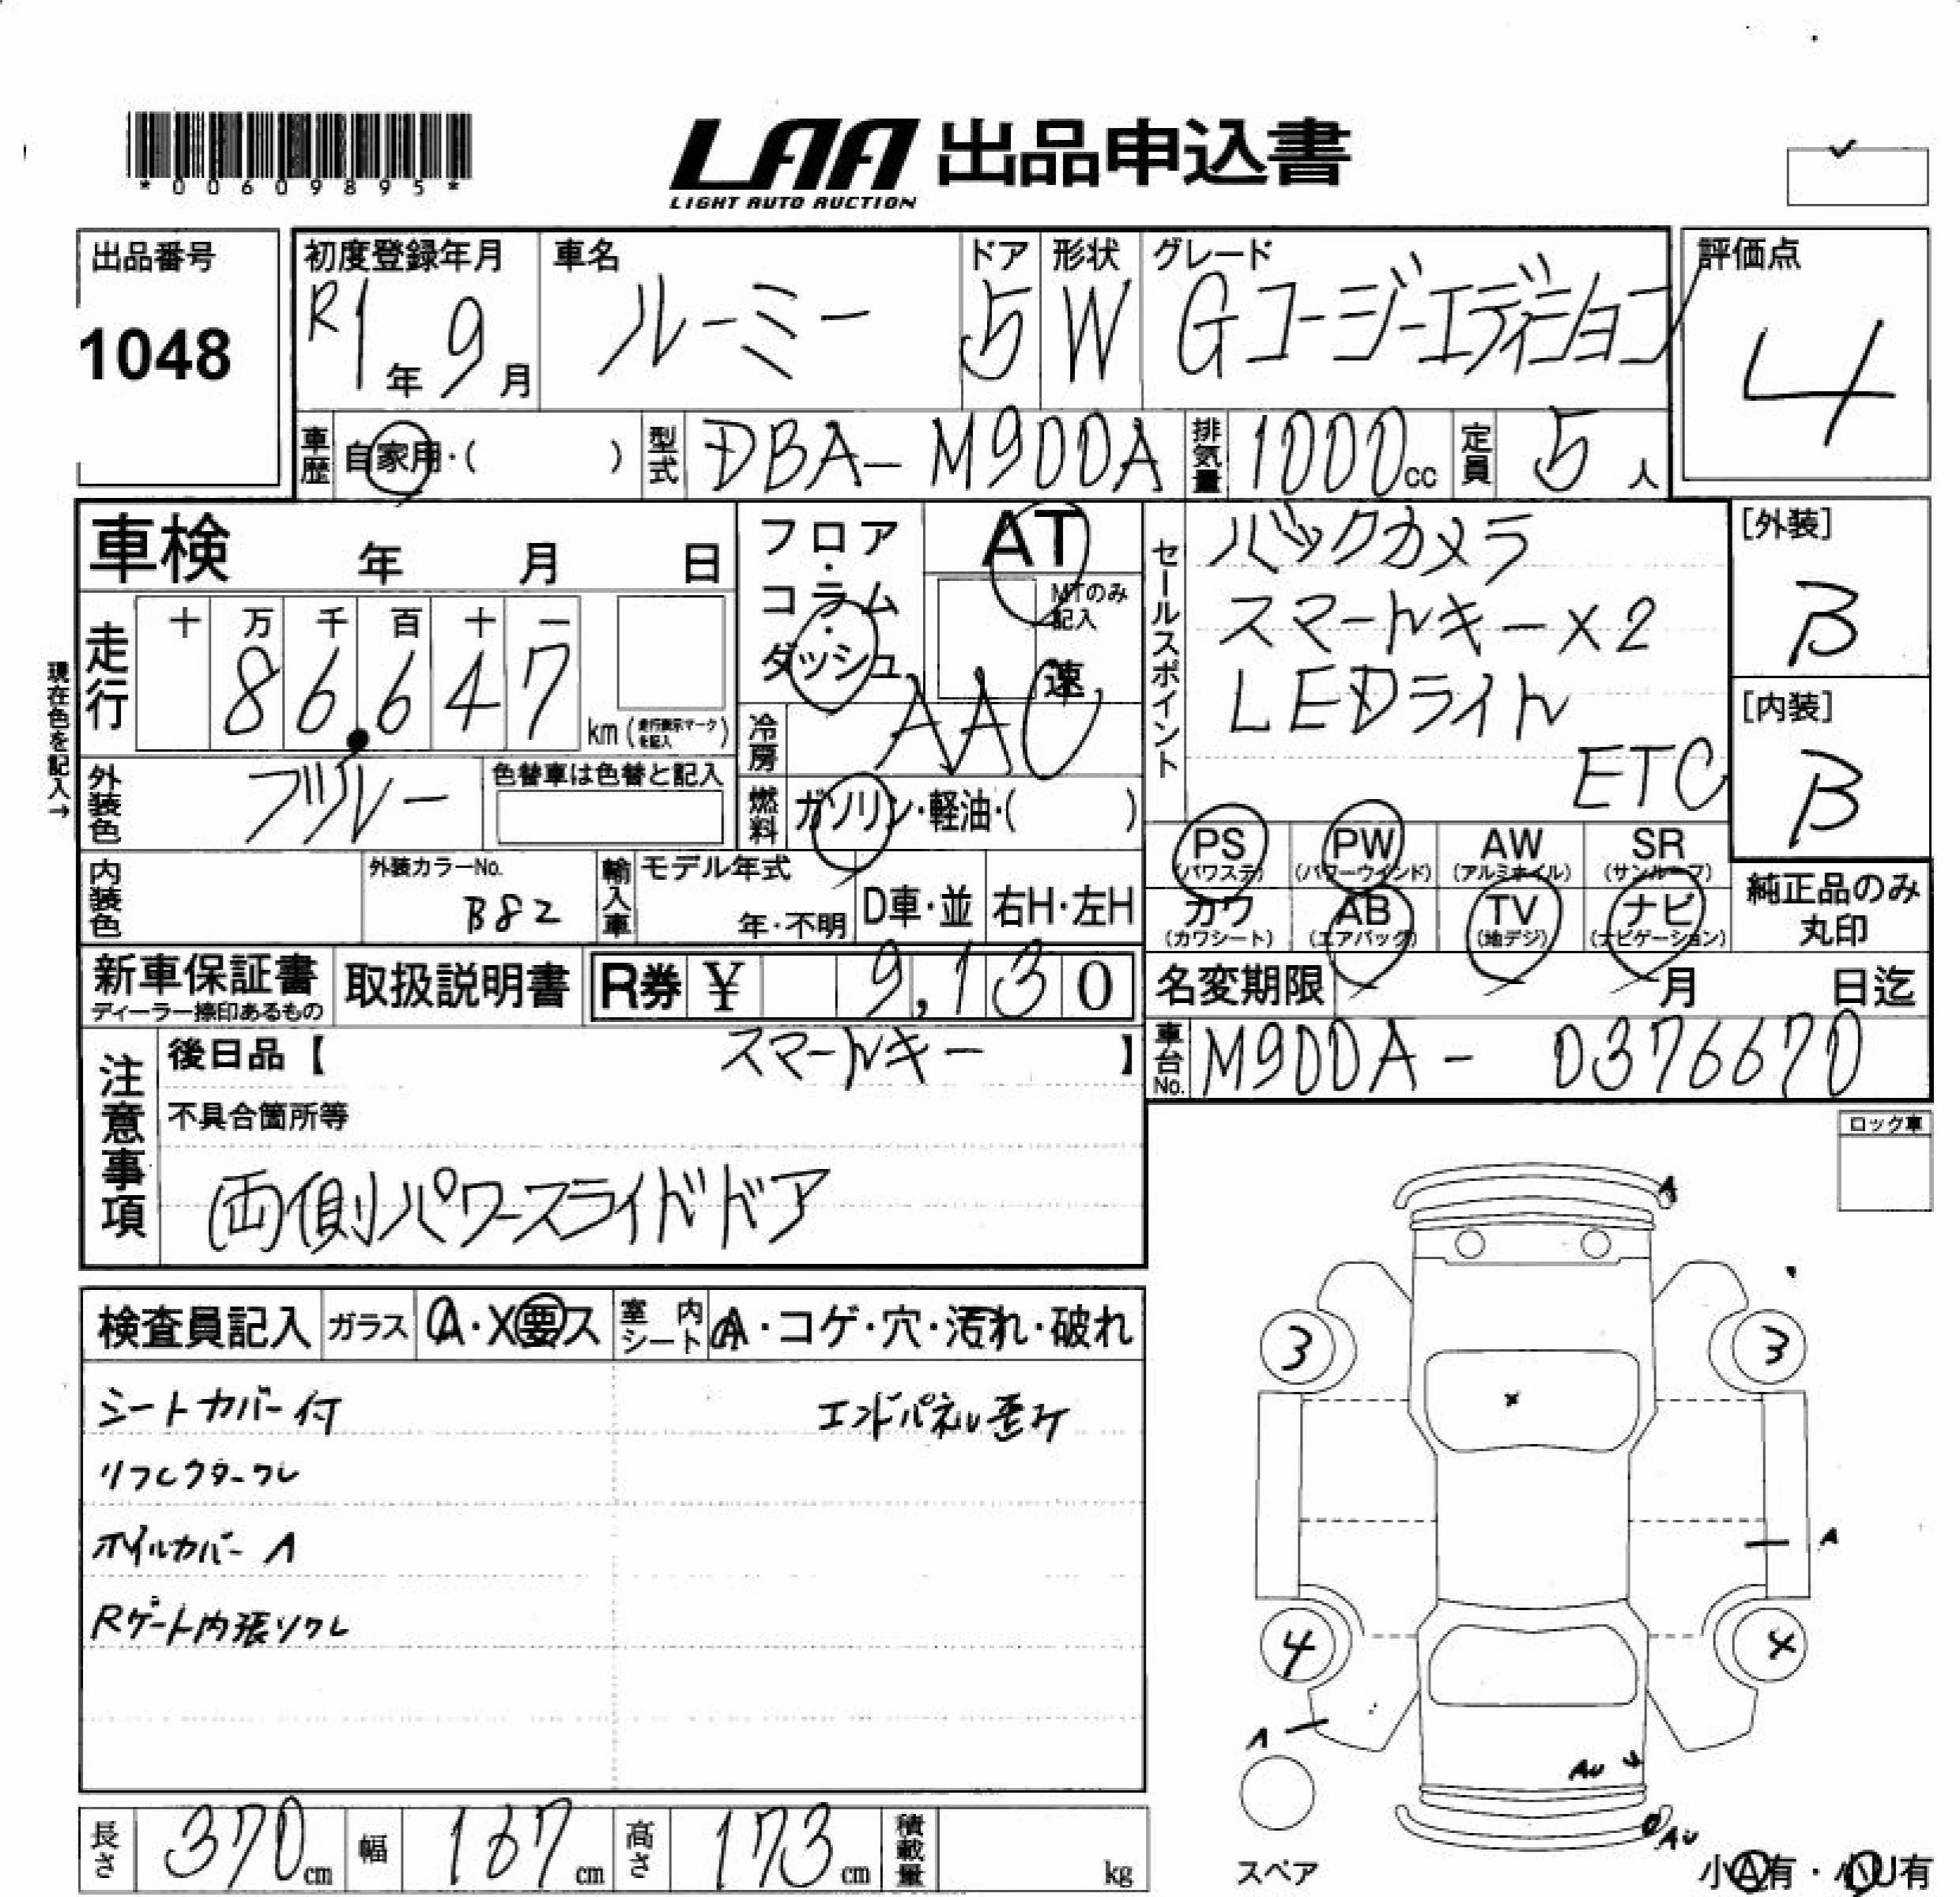 *00609895*
LAA 出品申込書
LIGHT AUTO AUCTION
出品番号
1048
初度登録年月
R1年 9月
車名
ルーミー
ドア
5
形状
W
グレード
Gコージーエディション
評価点
4
車歴 自家用・( )
型式 DBA-M900A
排気量 1000cc
定員 5人
車検 年 月 日
現在色を記入→
走行 十 万 千 百 十 一
86,647
km(走行表示マークを記入)
フロア・コラム・ダッシュ
AT
MTのみ記入
速
冷房 AAC
燃料 ガソリン・軽油・( )
セールスポイント
バックカメラ
スマートキー×2
LEDライト
ETC
[外装]
B
[内装]
B
外装色 ブルー
色替車は色替と記入
内装色
外装カラーNo.
B82
輸入車
モデル年式
年・不明
D車・並
右H・左H
PS
(パワステ)
PW
(パワーウインド)
AW
(アルミホイル)
SR
(サンルーフ)
カワ
(カワシート)
AB
(エアバッグ)
TV
(地デジ)
ナビ
(ナビゲーション)
純正品のみ
丸印
新車保証書
ディーラー捺印あるもの
取扱説明書
R券 ¥ 9,130
名変期限 月 日迄
車台No. M900A- 0376670
注意事項
後日品【 スマートキー 】
不具合箇所等
両側パワースライドドア
ロック車
検査員記入
ガラス A・X要ス
室内シート A・コゲ・穴・汚れ・破れ
シートカバー付
エンドパネル歪み
リフレクターワレ
ホイルカバーA
Rゲート内張ソクレ
A
3
3
x
A
4
4
A
AU
AU
スペア
小A有・小U有
長さ 370cm
幅 167cm
高さ 173cm
積載量 kg